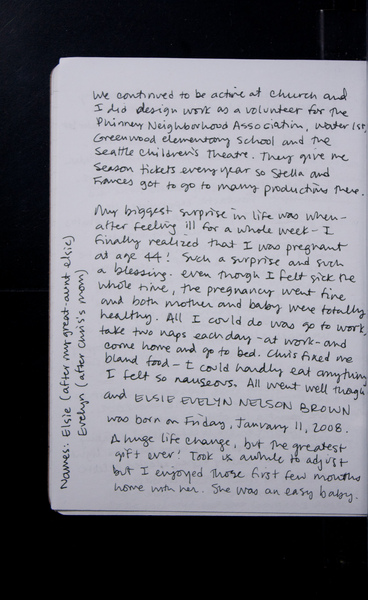 We continued to be active at church and
I did design work as a volunteer for the
Phinney Neighborhood Association, Water 1st,
Greenwood elementary School and the
Seattle Children's Theatre. They give me
season tickets every year so Stella and
Frances got to go to many productions there.
My biggest surprise in life was when -
after feeling ill for a whole week - I
finally realized that I was pregnant
at age 44! Such a surprise and such
a blessing. even though I felt sick the
whole time, the pregnancy went fine
and both mother and baby were totally
healthy. All I could do was go to work,
take two naps each day - at work - and
come home and go to bed. Chris fixed me
bland food - I could hardly eat anything
I felt so nauseous. All went well though
and ELSIE EVELYN NELSON BROWN
was born on Friday, January 11, 2008.
A huge life change, but the greatest
gift ever! Took us awhile to adjust
but I enjoyed those first few months
home with her. She was an easy baby.
Names: Elsie (after my great-aunt elsie)
Evelyn (after Chris's mom)